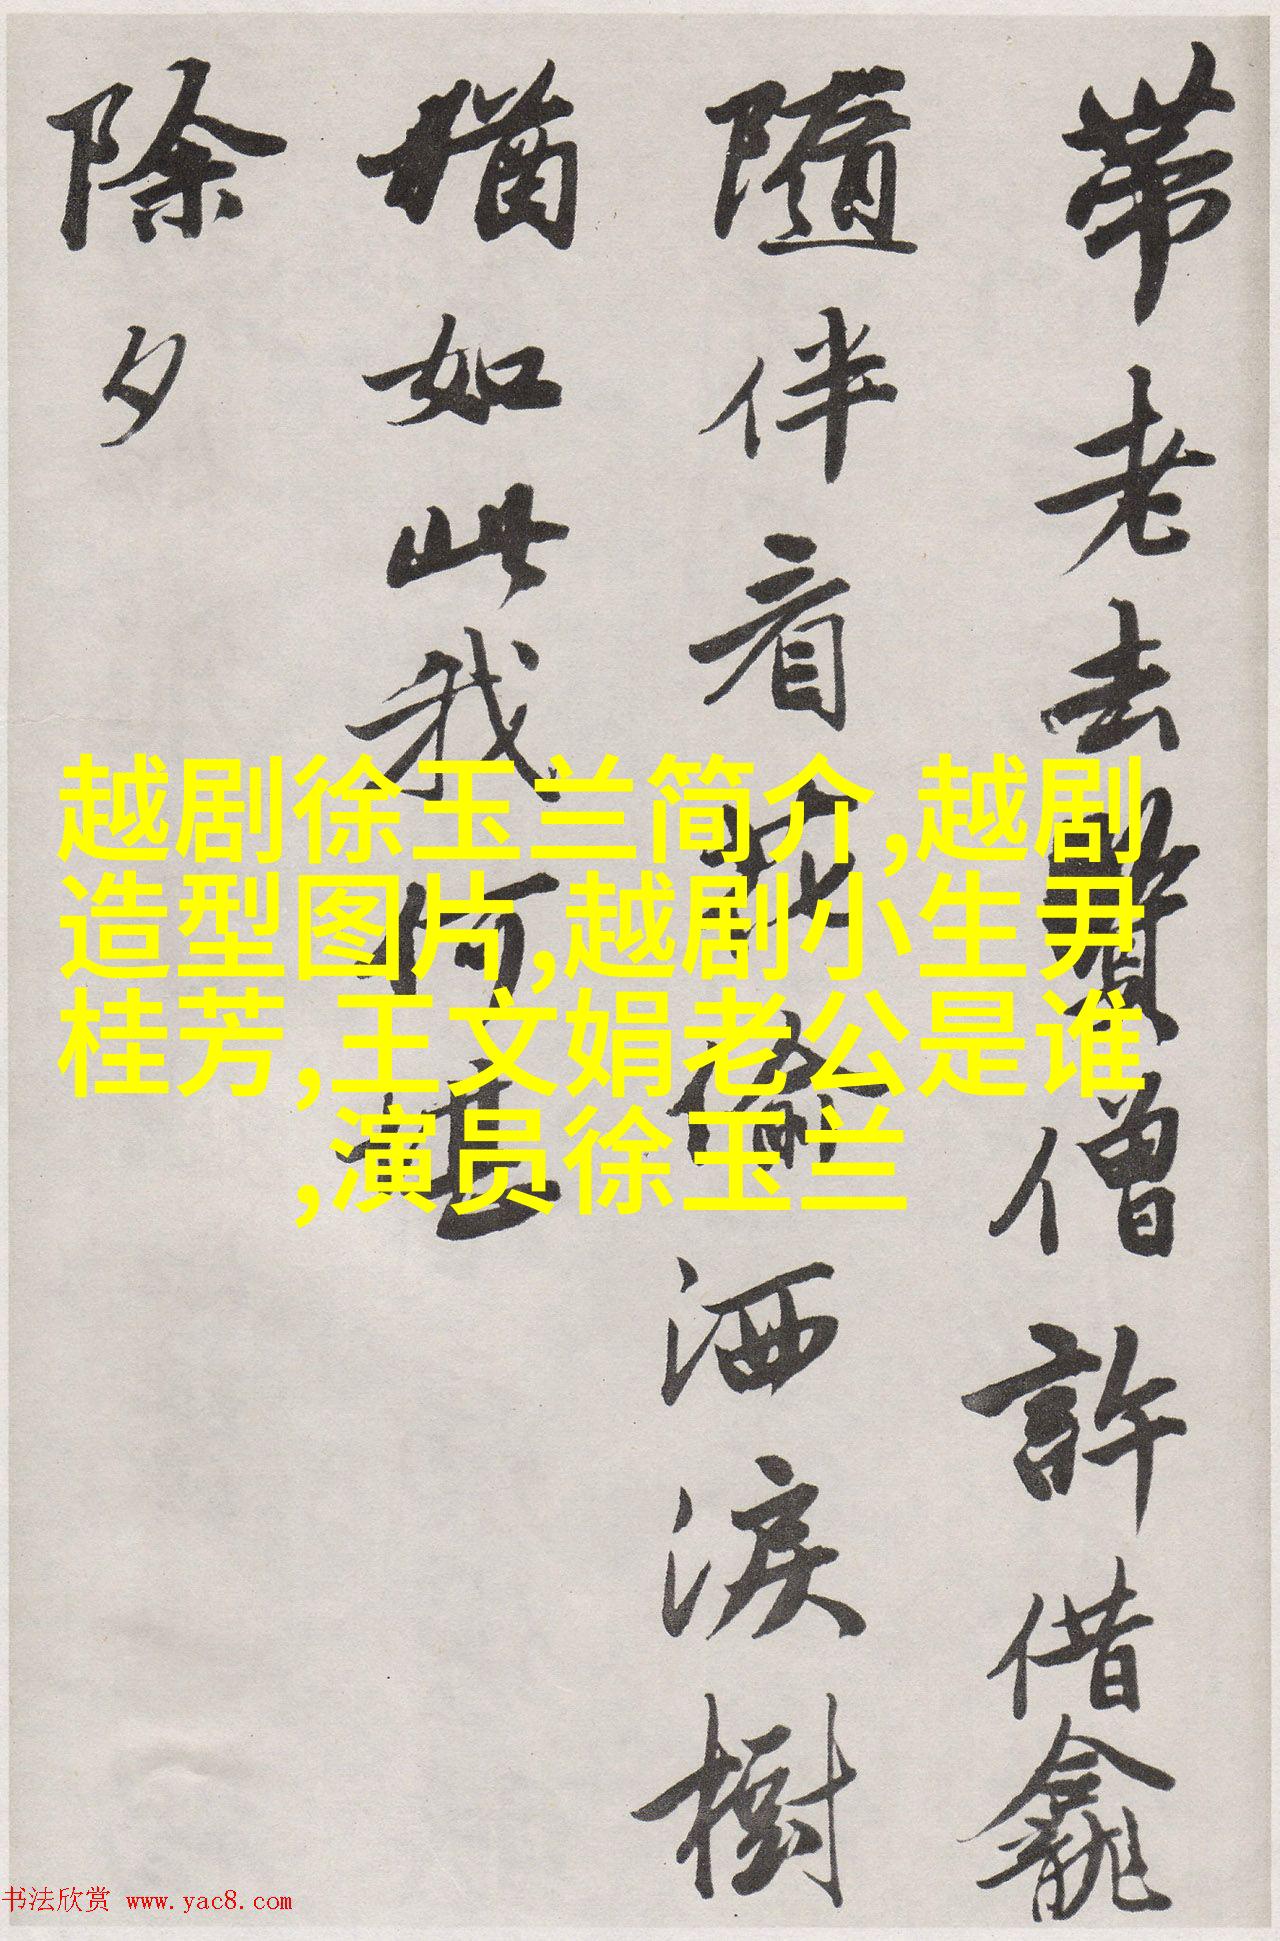 带老去賢僧許借龕
隨伴看
洒淚樹
猶如此我何堪
除夕
越剧徐玉兰简介,越剧
造型图片,越剧小生尹
桂芳,王文娟老公是谁
,演员徐玉兰
书法欣赏 www.yac8.com